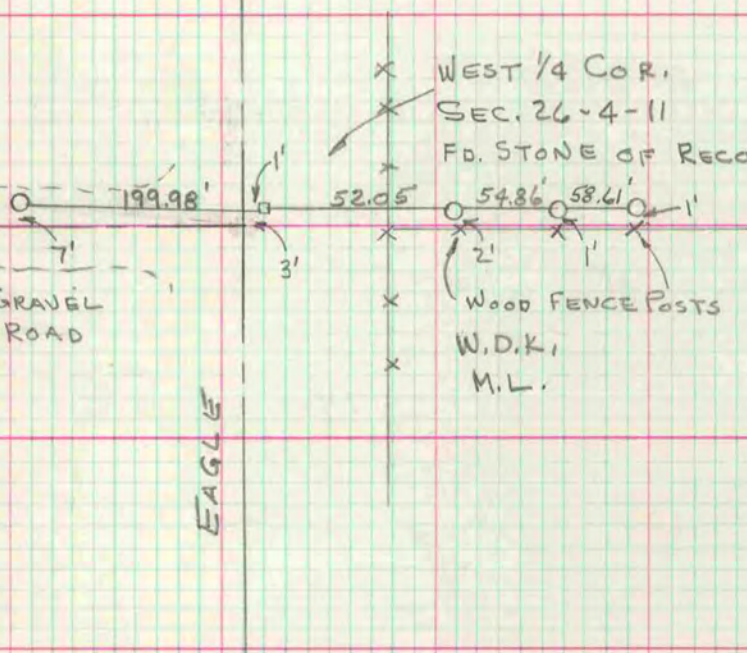 WEST 1/4 COR.
SEC. 26-4-11
FD. STONE OF RECO
1'
199.98'
52.05'
54.86'
58.61'
1'
7'
3'
2'
1'
GRAVEL
ROAD
WOOD FENCE POSTS
W.D.K.
M.L.
EAGLE